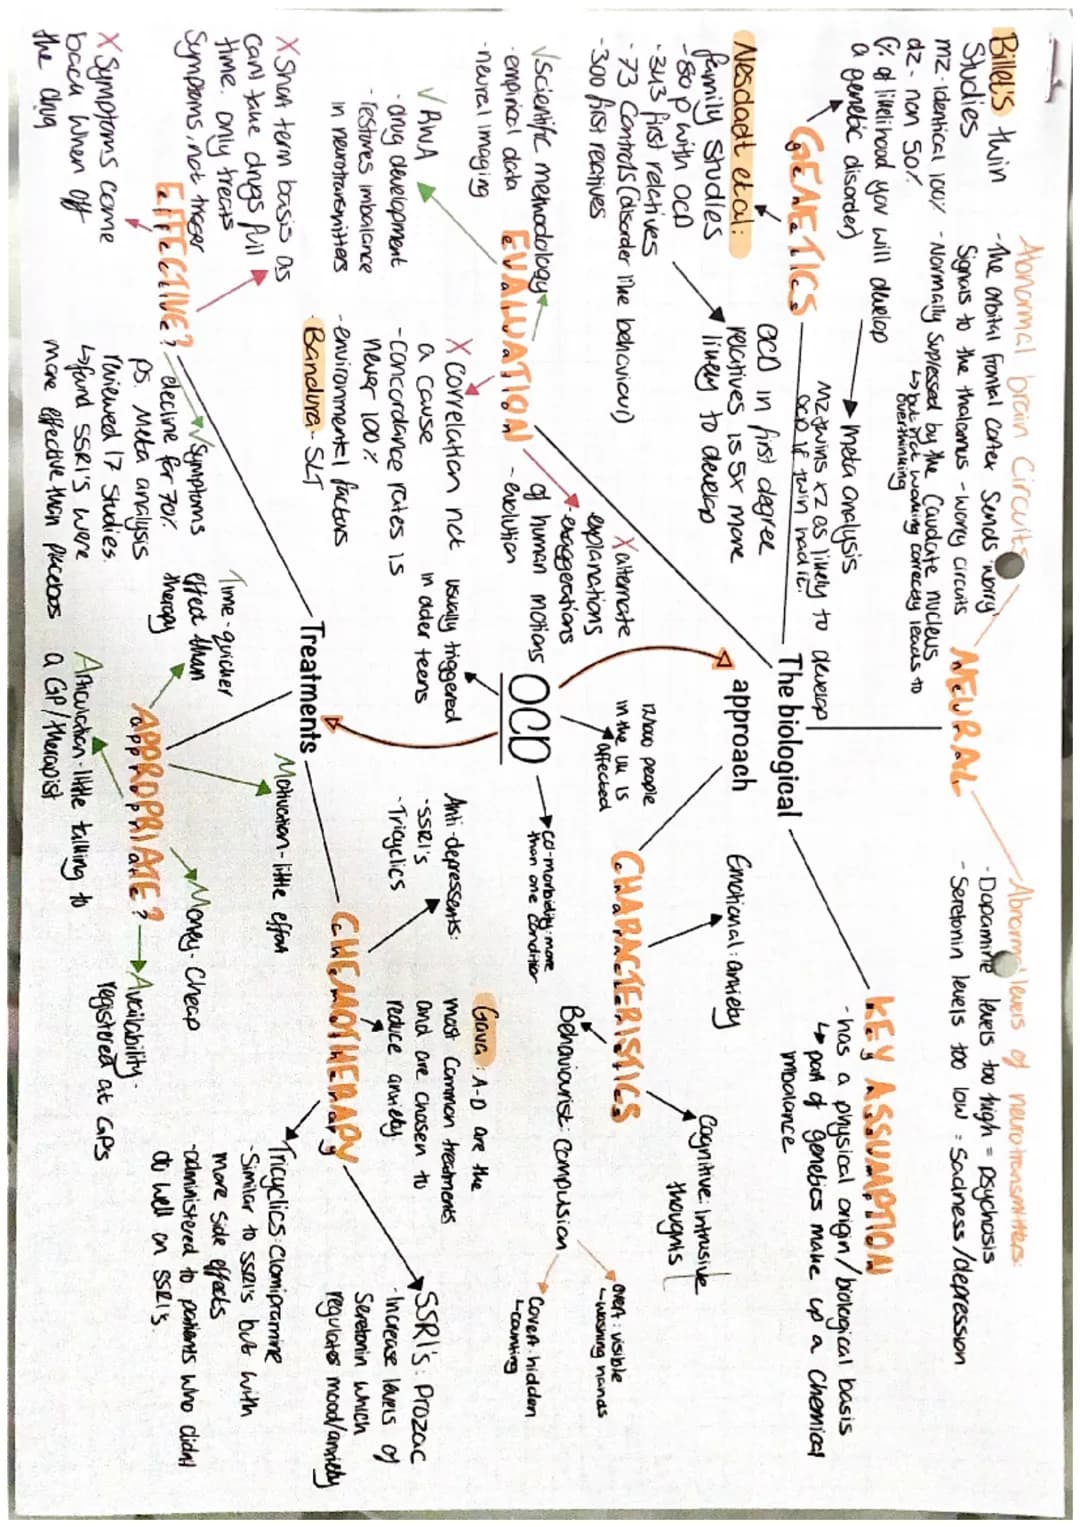 Abnormal brain circuits
- The orbital frontal cortex sends 'worry'
signals to the thalamus - worry circuits
- Normally supressed by the caudate nucleus
↳ but not working correctly leads to
overthinking
NEURAL
Abnormal levels of neurotransmitters:
- Dopamine levels too high = psychosis
- Seretonin levels too low = sadness/depression
Billet's twin
studies
mz - identical 100%
dz - non 50%
(% of likelihood you will develop
a genetic disorder)
→ meta analysis
mz twins x2 as likely to develop
OCD if twin had it.
GENETICS
Nesdadt et al:
family studies
- 80 p with OCD
- 343 first relatives
- 73 controls (disorder like behaviour)
- 300 first relatives
OCD in first degree
relatives is 5x more
likely to develop
The biological
approach
KEY ASSUMPTION
- has a physical origin/biological basis
↳ part of genetics make up a chemical
imbalance
EVALUATION
✓ scientific methodology
- empirical data
- neural imaging
✓ RWA
- drug development
- restores imbalance
in neurotransmitters
X alternate
explanations
- exaggerations
of human motions
- evolution
X correlation not
a cause
- concordance rates is
never 100%
- environmental factors
- Bandura - SLT
OCD
12/1000 people
in the UK is
affected
co-morbidity: more
than one condition
usually triggered
in older teens
CHARACTERISTICS
Emotional: anxiety
Cognitive: Intrusive
thoughts
Behaviourist: compulsion
overt: visible
↳ washing hands
covert: hidden
↳ counting
Treatments
CHEMOTHERAPY
Anti-depressents:
- SSRI's
- Tricyclics
Gava: A-D are the
most common treatments
and are chosen to
reduce anxiety.
SSRI's: Prozac
- Increase levels of
Seretonin which
regulates mood/anxiety
Tricyclics: Clomipramine
- Similar to SSRI's but with
more side effects
- administered to patients who didn't
do well on SSRI's.
EFFECTIVE?
X Short term basis as
can't take drugs full
time. only treats
symptoms, not trigger
X Symptoms come
back when off
the drug
✓ Symptoms
decline for 70%
ps. Meta analysis
reviewed 17 studies
↳ fund SSRI's were
more effective than placebos
APPROPRIATE?
Time - quicker
effect than
therapy
Motivation - little effort
Money - cheap
Availability -
registered at GPs
Articulation - little talking to
a GP/therapist